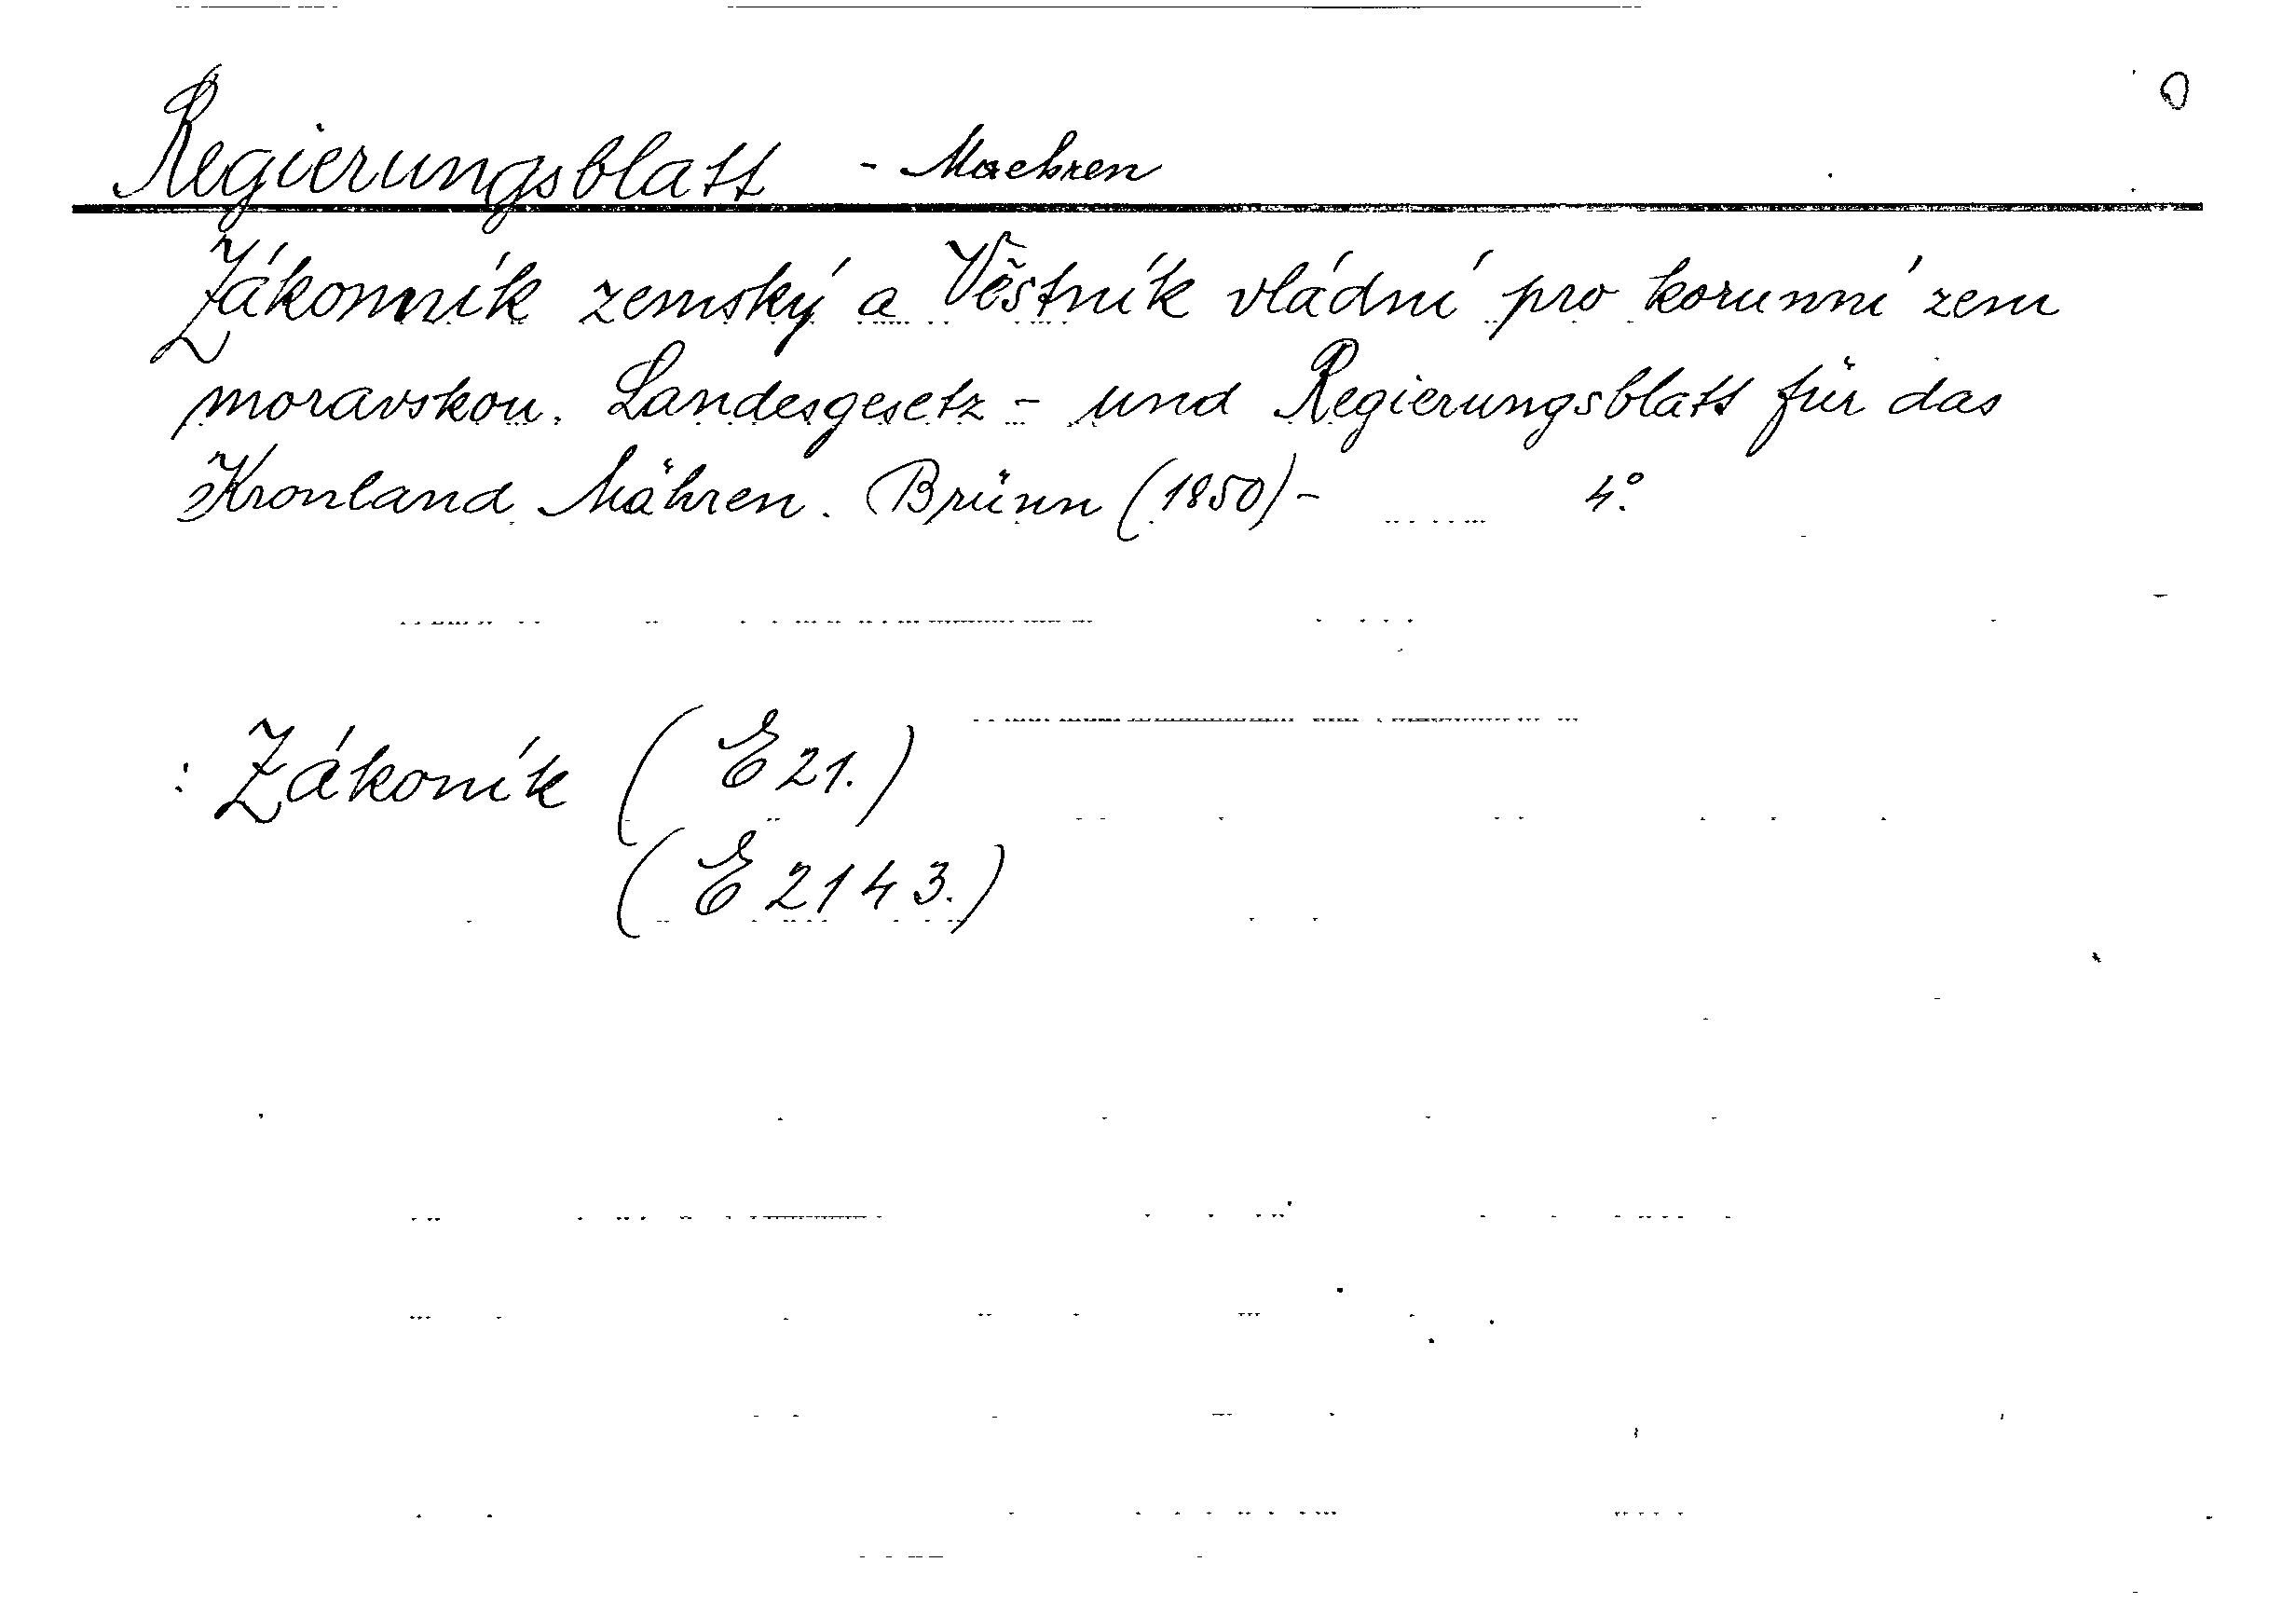 Regierungsblatt - Maehren
Zákonník zemský a Věstník vládní pro korunní zem
moravskou. Landesgesetz- und Regierungsblatt für das
Kronland Mähren. Brünn (1850)- 4°.
: Zákoník (E 21.)
(E 2143.)